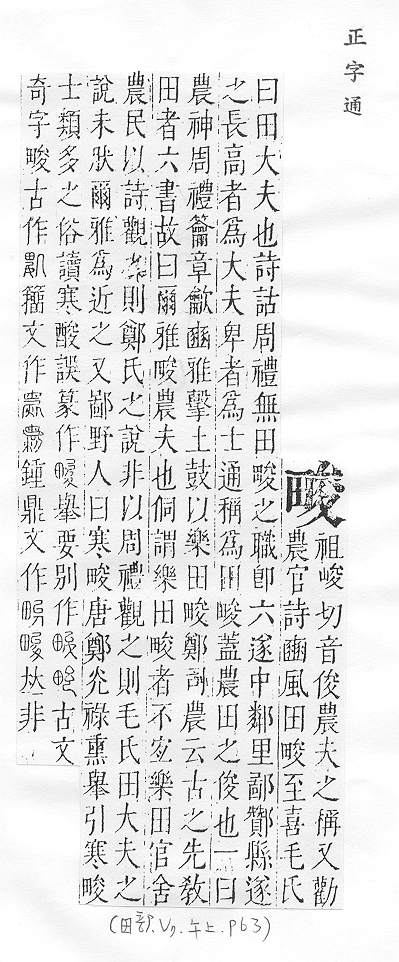 正字通
畯
祖峻切音俊農夫之稱又勸
農官詩豳風田畯至喜毛氏
曰田大夫也詩詁周禮無田畯之職卽六遂中鄰里鄙酇縣遂
之長高者爲大夫卑者爲士通稱爲田畯蓋農田之俊也一曰
農神周禮籥章龡豳雅擊土鼓以樂田畯鄭司農云古之先敎
田者六書故曰爾雅畯農夫也侗謂樂田畯者不宐樂田官舍
農民以詩觀之則鄭氏之說非以周禮觀之則毛氏田大夫之
說未肰爾雅爲近之又鄙野人曰寒畯唐鄭光祿熏舉引寒畯
士類多之俗讀寒酸誤篆作畯舉要別作古文
奇字畯古作籀文作鐘鼎文作𠀤非
(田部.V9.午上.p63)